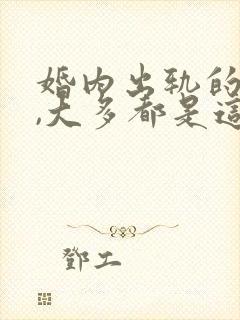 婚内出轨的
,大多都是這
鄧工